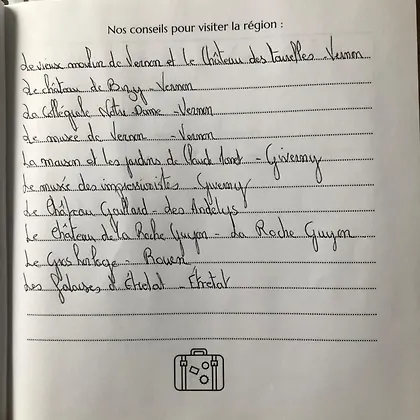 Nos conseils pour visiter la région :
Le vieux moulin de Vernon et le Château des tourelles - Vernon
Le château de Bizy - Vernon
La Collégiale Notre Dame - Vernon
Le musée de Vernon - Vernon
La maison et les jardins de Claude Monet - Giverny
Le musée des impressionistes - Giverny
Le Château Gaillard - des Andelys
Le Château de la Roche Guyon - La Roche Guyon
Le Gros horloge - Rouen
Les falaises d'Étretat - Étretat